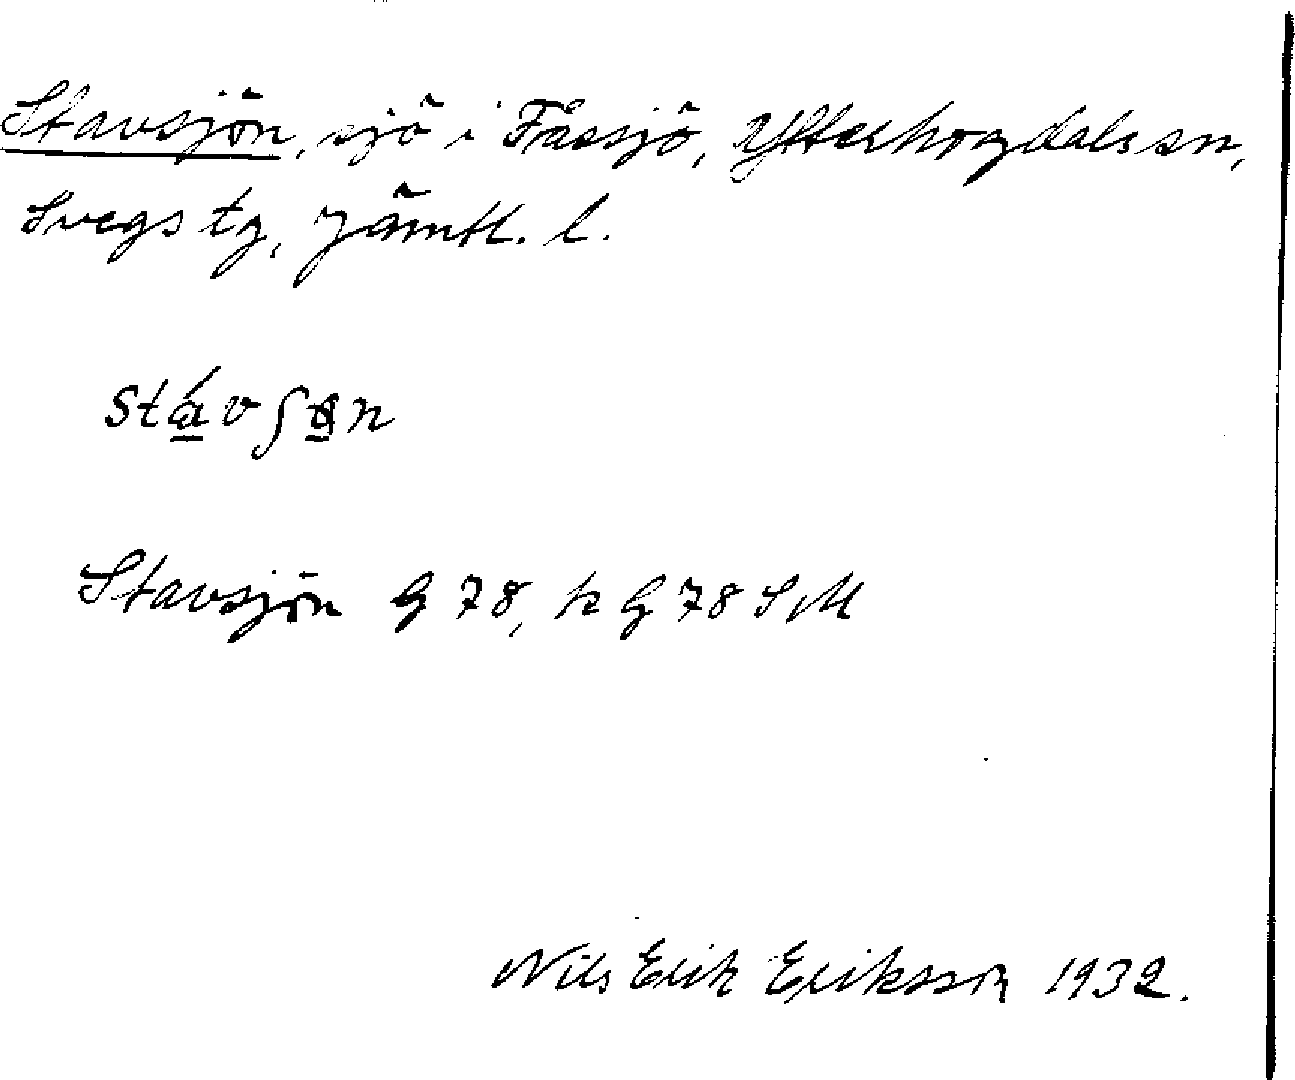 Stavsjön, sjö i Fåssjö, Ytterhogdals sn,
Svegs tg, Jämtl. l.
Stavsjön G 78, k G 78 SM
Nils Erik Eriksson 1932.